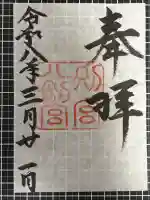 奉拝
令和八年三月廿一日